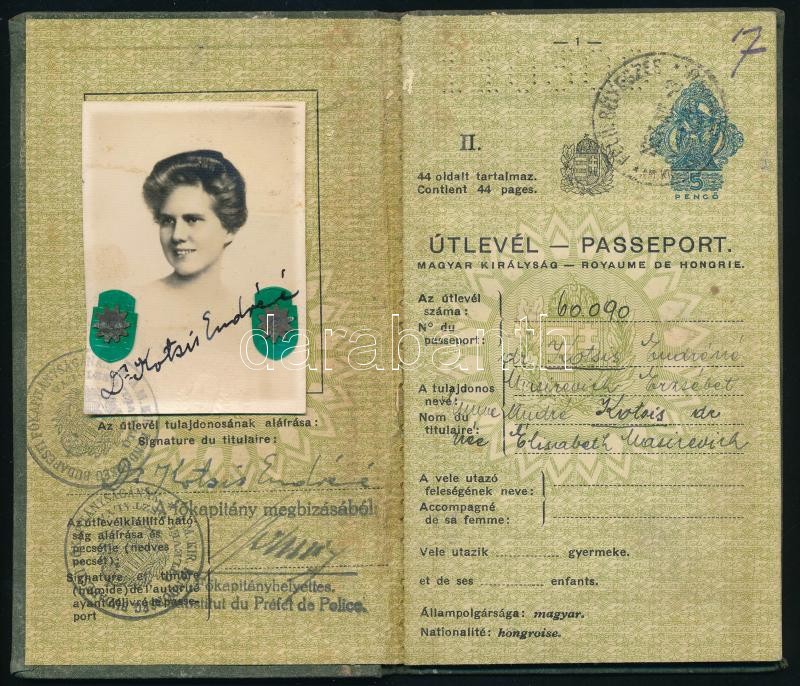 Dr Kotsis Endréné
Az útlevél tulajdonosának aláírása:
Signature du titulaire:
Dr Kotsis Endréné
A főkapitány megbizásából:
Az útlevélkiállító ható-
ság aláírása és
pecsétje (nedves
pecsét):
Signature et timbre
(humide) de l'autorité
ayant délivré le passe-
port
főkapitányhelyettes.
Substitut du Préfet de Police.
— 1 —
7
II.
44 oldalt tartalmaz.
Contient 44 pages.
5
PENGŐ
ÚTLEVÉL — PASSEPORT.
MAGYAR KIRÁLYSÁG — ROYAUME DE HONGRIE.
Az útlevél
száma:
Nº du
passeport:
60.090
dr. Kotsis Endréné
A tulajdonos
neve:
Wasirevich Erzsébet
Nom du
titulaire:
André Kotsis dr
née Elisabeth Wasirevich
A vele utazó
feleségének neve:
Accompagné
de sa femme:
Vele utazik gyermeke.
et de ses enfants.
Állampolgársága: magyar.
Nationalité: hongroise.
darabanth